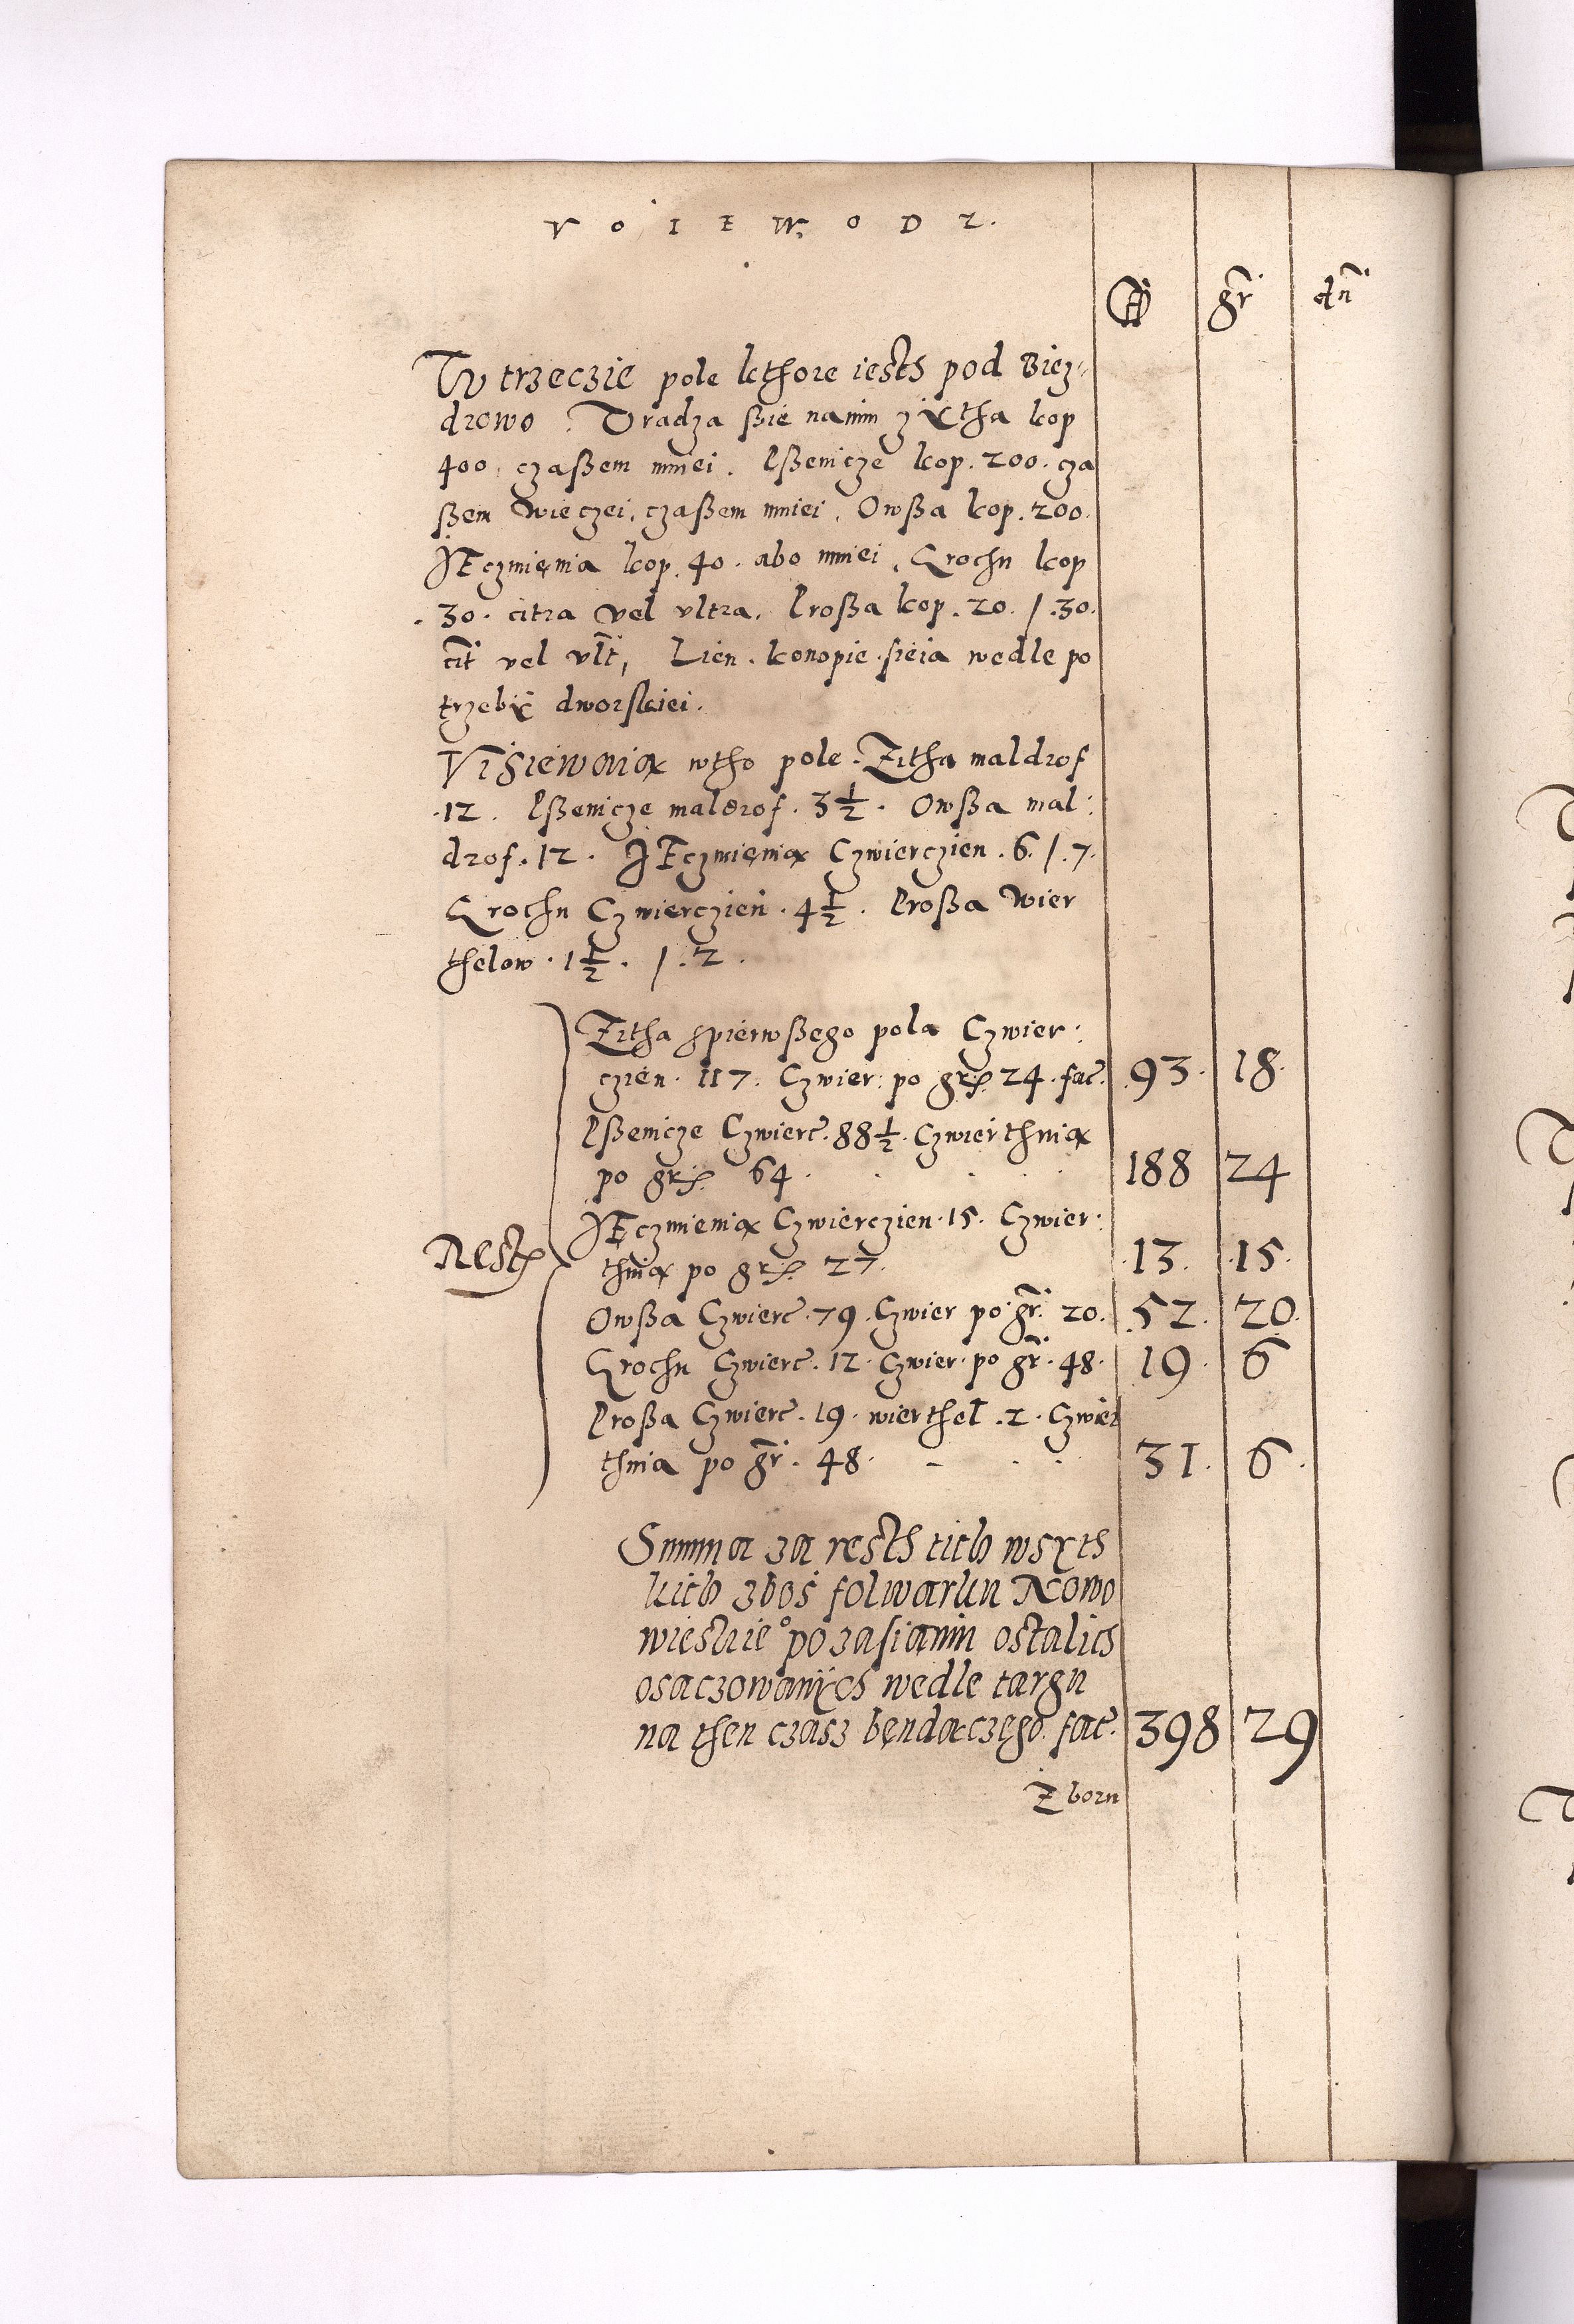 V O I E W O D Z.
fl gr dn
W trzeczie pole kthore iesth pod Biez-
drowo. Vradza ßie nanim zÿtha kop
400. czaßem mniei. Pßenicze kop. 200. cza
ßem wieczei, czaßem mniei. Owßa kop. 200.
JEczmięnia kop. 40. abo mniei. Grochu kop
.30. citra vel vltra. Proßa kop. 20. /. 30.
cit vel vlt, Lien. konopie sieia wedle po
trzebÿ dworskiei.
Visiewaią wtho pole. Zitha maldrof
.12. Pßenicze maldrof. 3½. Owßa mal:
drof. 12. JEczmięnia Czwierczien. 6. /. 7.
Grochu Czwierczien. 4½. Proßa wier
thelow. 1½. /. 2.
Zitha spierwßego pola Czwier:
czien. 117. Czwier: po gr. 24. fac. 93. 18.
Pßenicze Czwierc. 88½. Czwierthnia
po gr. 64. 188 24
JEczmienia Czwierczien. 15. Czwier:
Rest thnia po gr. 27. 13. 15.
Owßa Czwierc. 79. Czwier po gr. 20. 52. 20.
Grochu Czwierc. 12. Czwier. po gr. 48. 19. 6
Proßa Czwierc. 19. wierthel. 2. Czwier
thnia po gr. 48. 31. 6.
Summa za resth tich wsÿth
kich zbos folwarku Nowo
wieskie° po zasianiu ostalich
osaczowanÿch wedle targu
na then czasz będączego. fac. 398 29
Zboru